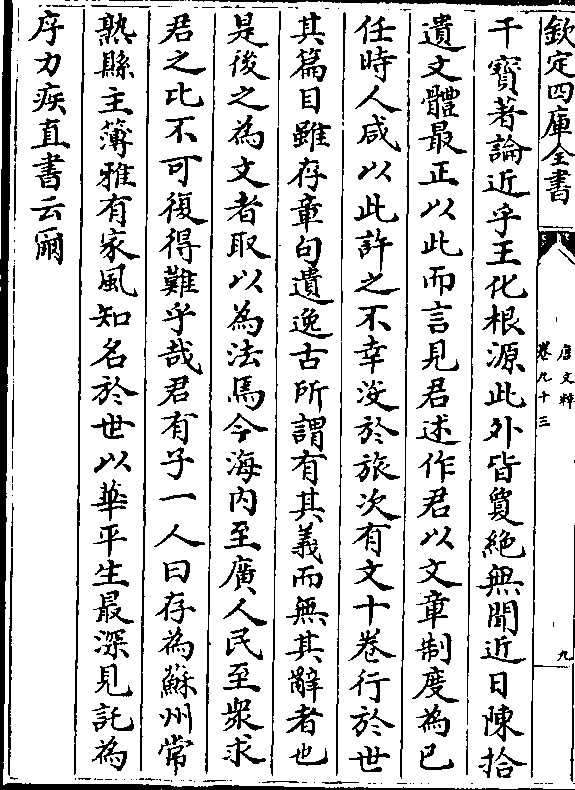 欽定四庫全書
唐文粹
卷九十三
九
干寶著論近乎王化根源此外皆敻絶無聞近日陳拾
遺文體最正以此而言見君述作君以文章制度為已
任時人咸以此許之不幸沒於旅次有文十卷行於世
其篇目雖存章句遺逸古所謂有其義而無其辭者也
是後之為文者取以為法焉今海内至廣人民至衆求
君之比不可復得難乎哉君有子一人曰存為蘇州常
熟縣主簿雅有家風知名於世以華平生最深見託為
序力疾直書云爾